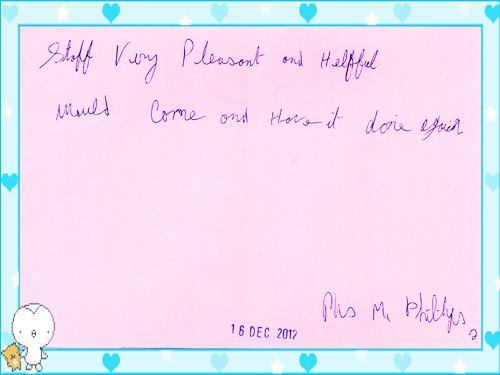 Staff Very Pleasant and Helpful.
Would Come and Have it done again
Mrs M. Phillips
16 DEC 2012